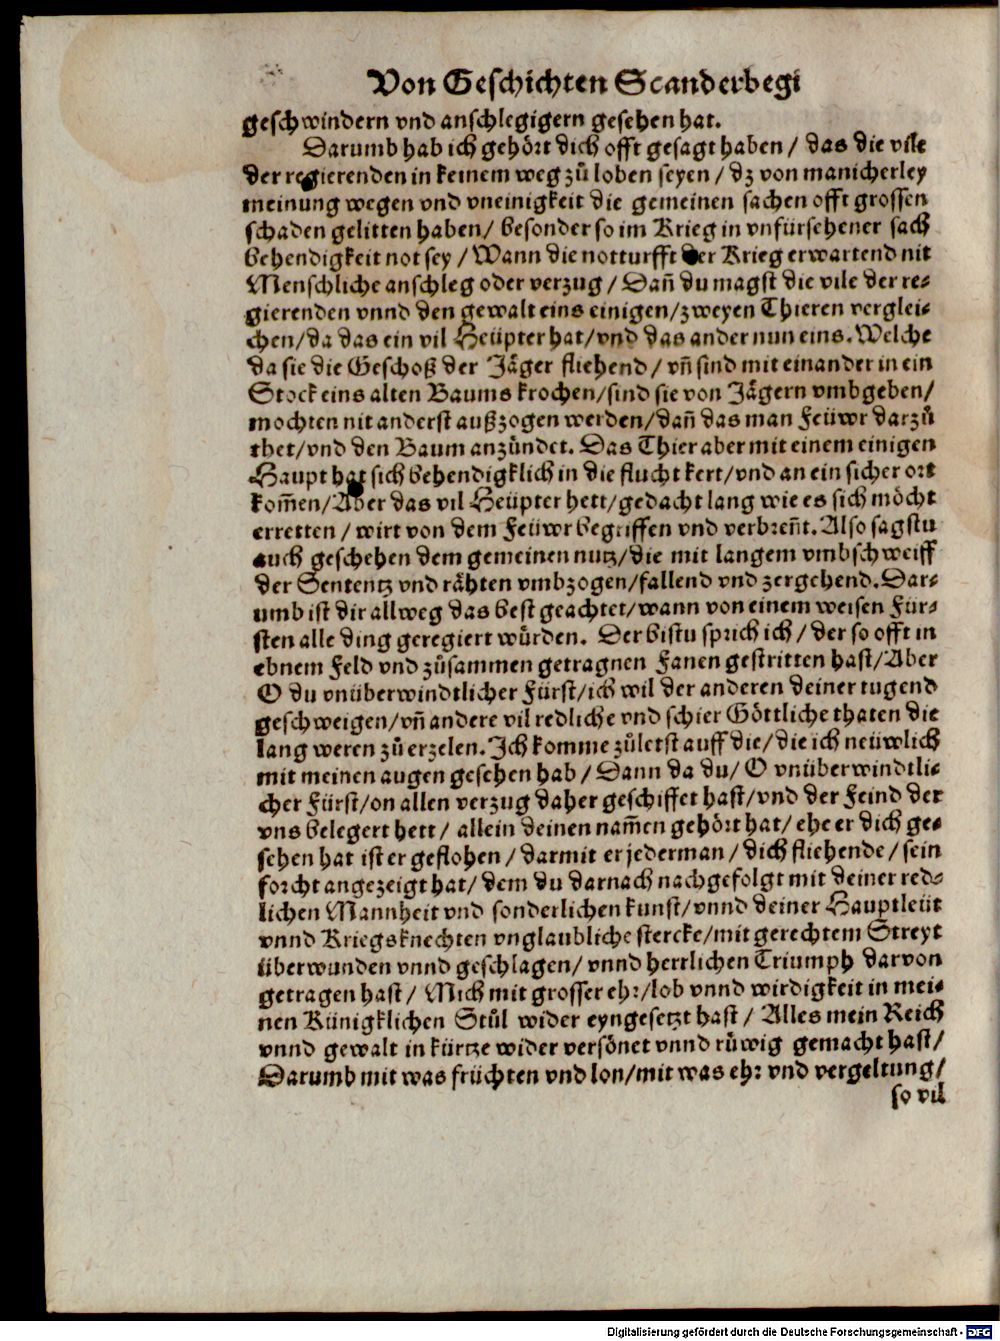 Von Geschichten Scanderbegi
geschwindern vnd anschlegigern gesehen hat.
Darumb hab ich gehört dich offt gesagt haben / das die vile
der regierenden in keinem weg zů loben seyen / dz von manicherley
meinung wegen vnd vneinigkeit die gemeinen sachen offt grossen
schaden gelitten haben / besonder so im Krieg in vnfürsehener sach
behendigkeit not sey / Wann die notturfft der Krieg erwartend nit
Menschliche anschleg oder verzug / Dañ du magst die vile der re⸗
gierenden vnnd den gewalt eins einigen / zweyen Thieren verglei⸗
chen / da das ein vil Heüpter hat / vnd das ander nun eins. Welche
da sie die Geschoß der Jäger fliehend / vñ sind mit einander in ein
Stock eins alten Baums krochen / sind sie von Jägern vmbgeben /
mochten nit anderst außzogen werden / dañ das man Feüwr darzů
thet / vnd den Baum anzündet. Das Thier aber mit einem einigen
Haupt hat sich behendigklich in die flucht kert / vnd an ein sicher ort
kom̃en / Aber das vil Heüpter hett / gedacht lang wie es sich möcht
erretten / wirt von dem Feüwr begriffen vnd verbreñt. Also sagstu
auch geschehen dem gemeinen nutz / die mit langem vmbschweiff
der Sententz vnd rähten vmbzogen / fallend vnd zergehend. Dar⸗
umb ist dir allweg das best geachtet / wann von einem weisen Für⸗
sten alle ding geregiert würden. Der bistu sprich ich / der so offt in
ebnem Feld vnd zůsammen getragnen Fanen gestritten hast / Aber
O du vnüberwindtlicher Fürst / ich wil der anderen deiner tugend
geschweigen / vñ andere vil redliche vnd schier Göttliche thaten die
lang weren zů erzelen. Ich komme zůletst auff die / die ich neüwlich
mit meinen augen gesehen hab / Dann da du / O vnüberwindtli⸗
cher Fürst / on allen verzug daher geschiffet hast / vnd der Feind der
vns belegert hett / allein deinen nam̃en gehört hat / ehe er dich ge⸗
sehen hat ist er geflohen / darmit er jederman / dich fliehende / sein
forcht angezeigt hat / dem du darnach nachgefolgt mit deiner red⸗
lichen Mannheit vnd sonderlichen kunst / vnnd deiner Hauptleüt
vnnd Kriegsknechten vnglaubliche stercke / mit gerechtem Streyt
überwunden vnnd geschlagen / vnnd herrlichen Triumph darvon
getragen hast / Mich mit grosser ehr / lob vnnd wirdigkeit in mei⸗
nen Künigklichen Stůl wider eyngesetzt hast / Alles mein Reich
vnnd gewalt in kürtze wider versönet vnnd růwig gemacht hast /
Darumb mit was früchten vnd lon / mit was ehr vnd vergeltung /
so vil
Digitalisierung gefördert durch die Deutsche Forschungsgemeinschaft - DFG